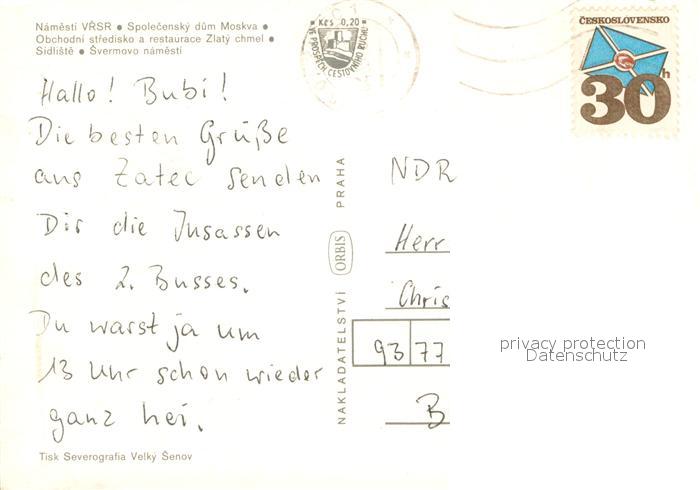 Náměstí VŘSR ● Společenský dům Moskva ●
Obchodní středisko a restaurace Zlatý chmel ●
Sídliště ● Švermovo náměstí
Hallo! Bubi!
Die besten Grüße
aus Žatec senden
Dir die Insassen
des 2. Busses.
Du warst ja um
13 Uhr schon wieder
ganz hei.
Tisk Severografia Velký Šenov
NAKLADATELSTVÍ ORBIS PRAHA
Kčs 0,20
VE PROSPĚCH CESTOVNÍHO RUCHU
ČESKOSLOVENSKO
30h
NDR
Herr
Chris
93 77
B
privacy protection
Datenschutz